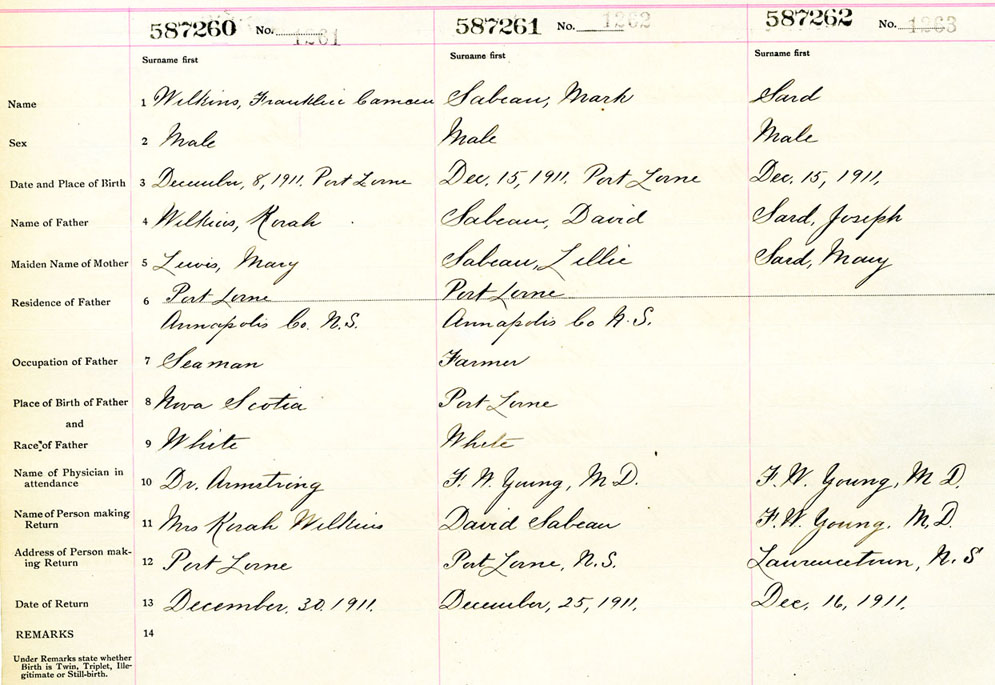 587260 No. 1261 587261 No. 1262 587262 No. 1263
Surname first Surname first Surname first
Name 1 Wilkins, Franklin Cameau Sabeau, Mark Sard
Sex 2 Male Male Male
Date and Place of Birth 3 December, 8, 1911. Port Lorne Dec. 15, 1911. Port Lorne Dec. 15, 1911.
Name of Father 4 Wilkins, Korah Sabeau, David Sard, Joseph
Maiden Name of Mother 5 Lewis, Mary Sabeau, Lillie Sard, Mary
Residence of Father 6 Port Lorne Port Lorne
Annapolis Co. N.S. Annapolis Co N.S.
Occupation of Father 7 Seaman Farmer
Place of Birth of Father 8 Nova Scotia Port Lorne
and
Race of Father 9 White White
Name of Physician in
attendance 10 Dr. Armstring F. W. Young, M D. F. W. Young, M D.
Name of Person making
Return 11 Mrs Korah Wilkins David Sabeau F. W. Young. M. D.
Address of Person mak-
ing Return 12 Port Lorne Port Lorne, N.S. Laurencetown, N.S
Date of Return 13 December. 30, 1911. December, 25, 1911. Dec. 16, 1911.
REMARKS 14
Under Remarks state whether
Birth is Twin, Triplet, Ille-
gitimate or Still-birth.